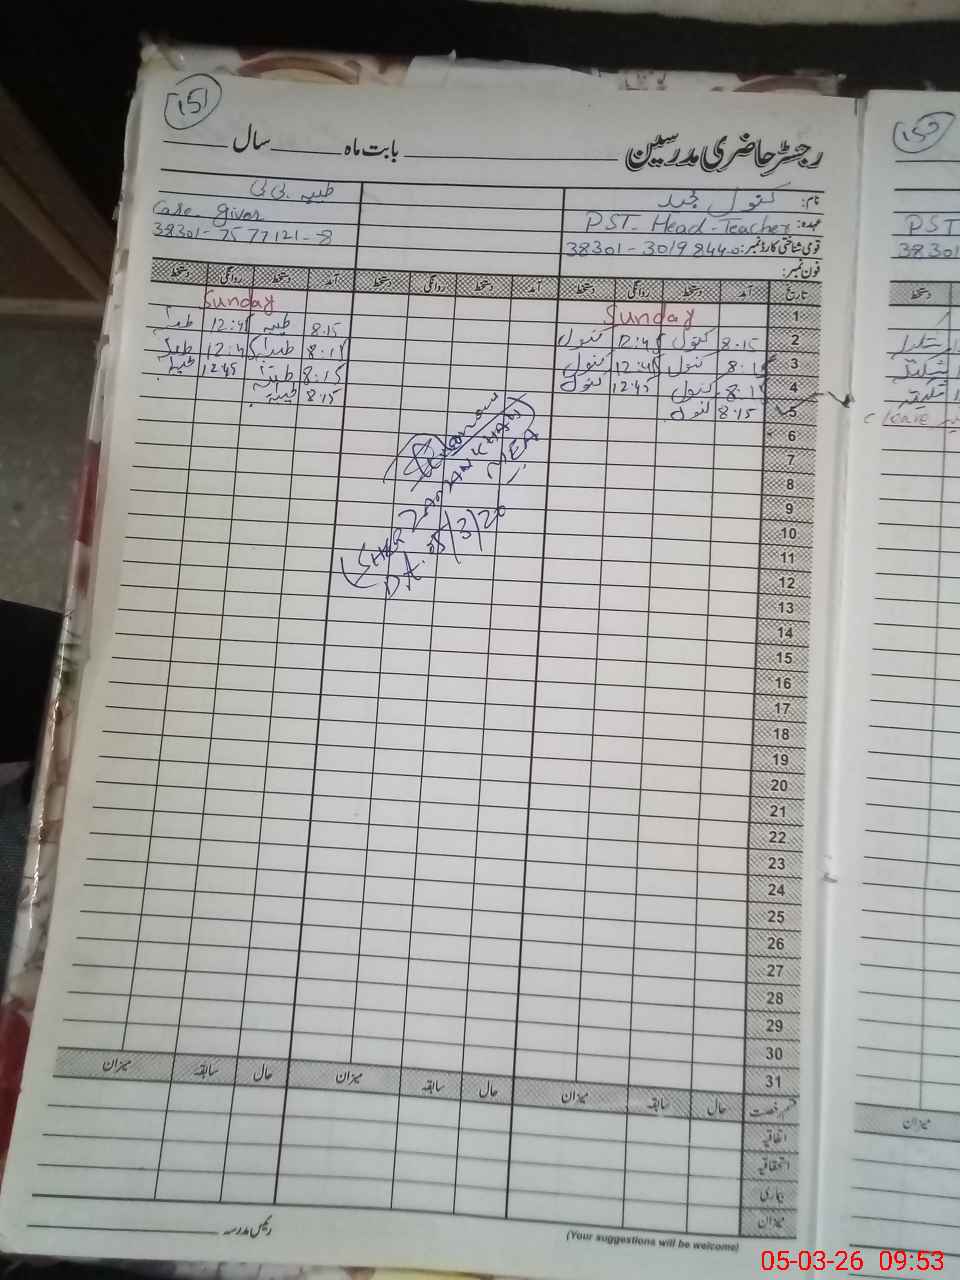 151
رجسٹر حاضری مدرسین ـــــــــ بابت ماہ ـــــــــ سال ـــــــــ
نام: کنول مجید
طیبہ بی بی
عہدہ: PST- Head-Teacher
Care giver
قومی شناختی کارڈ نمبر: 38301-3019844-0
38301-7577121-8
فون نمبر:
تاریخ آمد دستخط روانگی دستخط آمد دستخط روانگی دستخط آمد دستخط روانگی دستخط
1 Sunday Sunday
2 8:15 کنول 12:45 کنول 8:15 طیبہ 12:45 طیبہ
3 8:15 کنول 12:45 کنول 8:15 طیبہ 12:45 طیبہ
4 8:15 کنول 12:45 کنول 8:15 طیبہ 12:45 طیبہ
5 8:15 کنول 8:15 طیبہ
6
7
8
9
10
11
12
13
14
15
16
17
18
19
20
21
22
23
24
25
26
27
28
29
30
31
SHER ZAMAN KHAN
MEA
قسم رخصت حال سابقہ میزان حال سابقہ میزان حال سابقہ میزان
اتفاقیہ
استحقاقیہ
بیماری
میزان
رئیس مدرسہ ـــــــــ
(Your suggestions will be welcome)
152
PST
38301
دستخط
leave
میزان
05-03-26 09:53